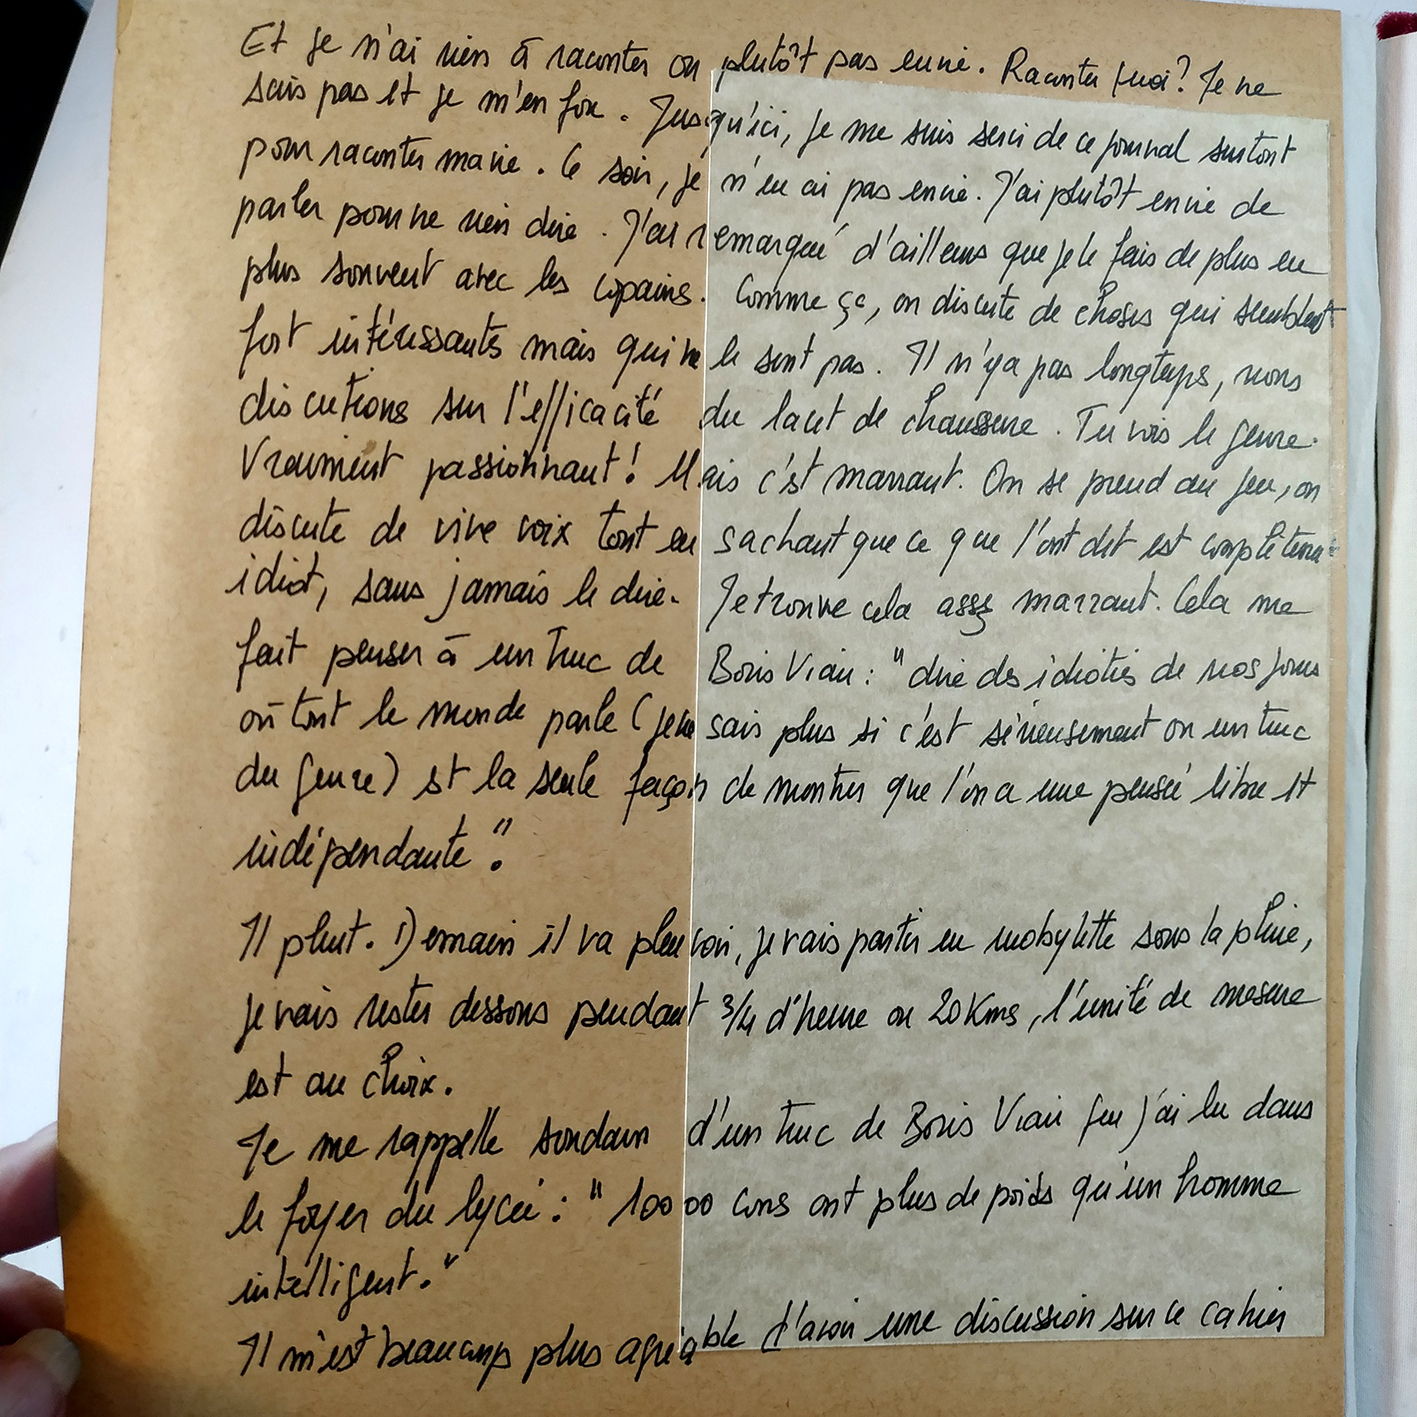 Et je n'ai rien à raconter ou plutôt pas envie. Raconter quoi? Je ne
sais pas et je m'en fou. Jusqu'ici, je me suis servi de ce journal surtout
pour raconter ma vie. Ce soir, je n'en ai pas envie. J'ai plutôt envie de
parler pour ne rien dire. J'ai remarqué d'ailleurs que je le fais de plus en
plus souvent avec les copains. Comme ça, on discute de choses qui semblent
fort intéressants mais qui ne le sont pas. Il n'y a pas longteps, nous
discutions sur l'efficacité du lacet de chaussure. Tu vois le genre.
Vraiment passionnant! Mais c'est marrant. On se prend au jeu, on
discute de vive voix tout en sachant que ce que l'ont dit est complètement
idiot, sans jamais le dire. Je trouve cela assez marrant. Cela me
fait penser à un truc de Boris Vian : "dire des idioties de nos jours
où tout le monde parle (je ne sais plus si c'est sérieusement ou un truc
du genre) est la seule façon de montrer que l'on a une pensée libre et
indépendante".
Il pleut. Demain il va pleuvoir, je vais partir en mobylette sous la pluie,
je vais rester dessous pendant 3/4 d'heure ou 20 Kms, l'unité de mesure
est au choix.
Je me rappelle soudain d'un truc de Boris Vian que j'ai lu dans
le foyer du lycée : "10000 cons ont plus de poids qu'un homme
intelligent."
Il m'est beaucoup plus agréable d'avoir une discussion sur ce cahier